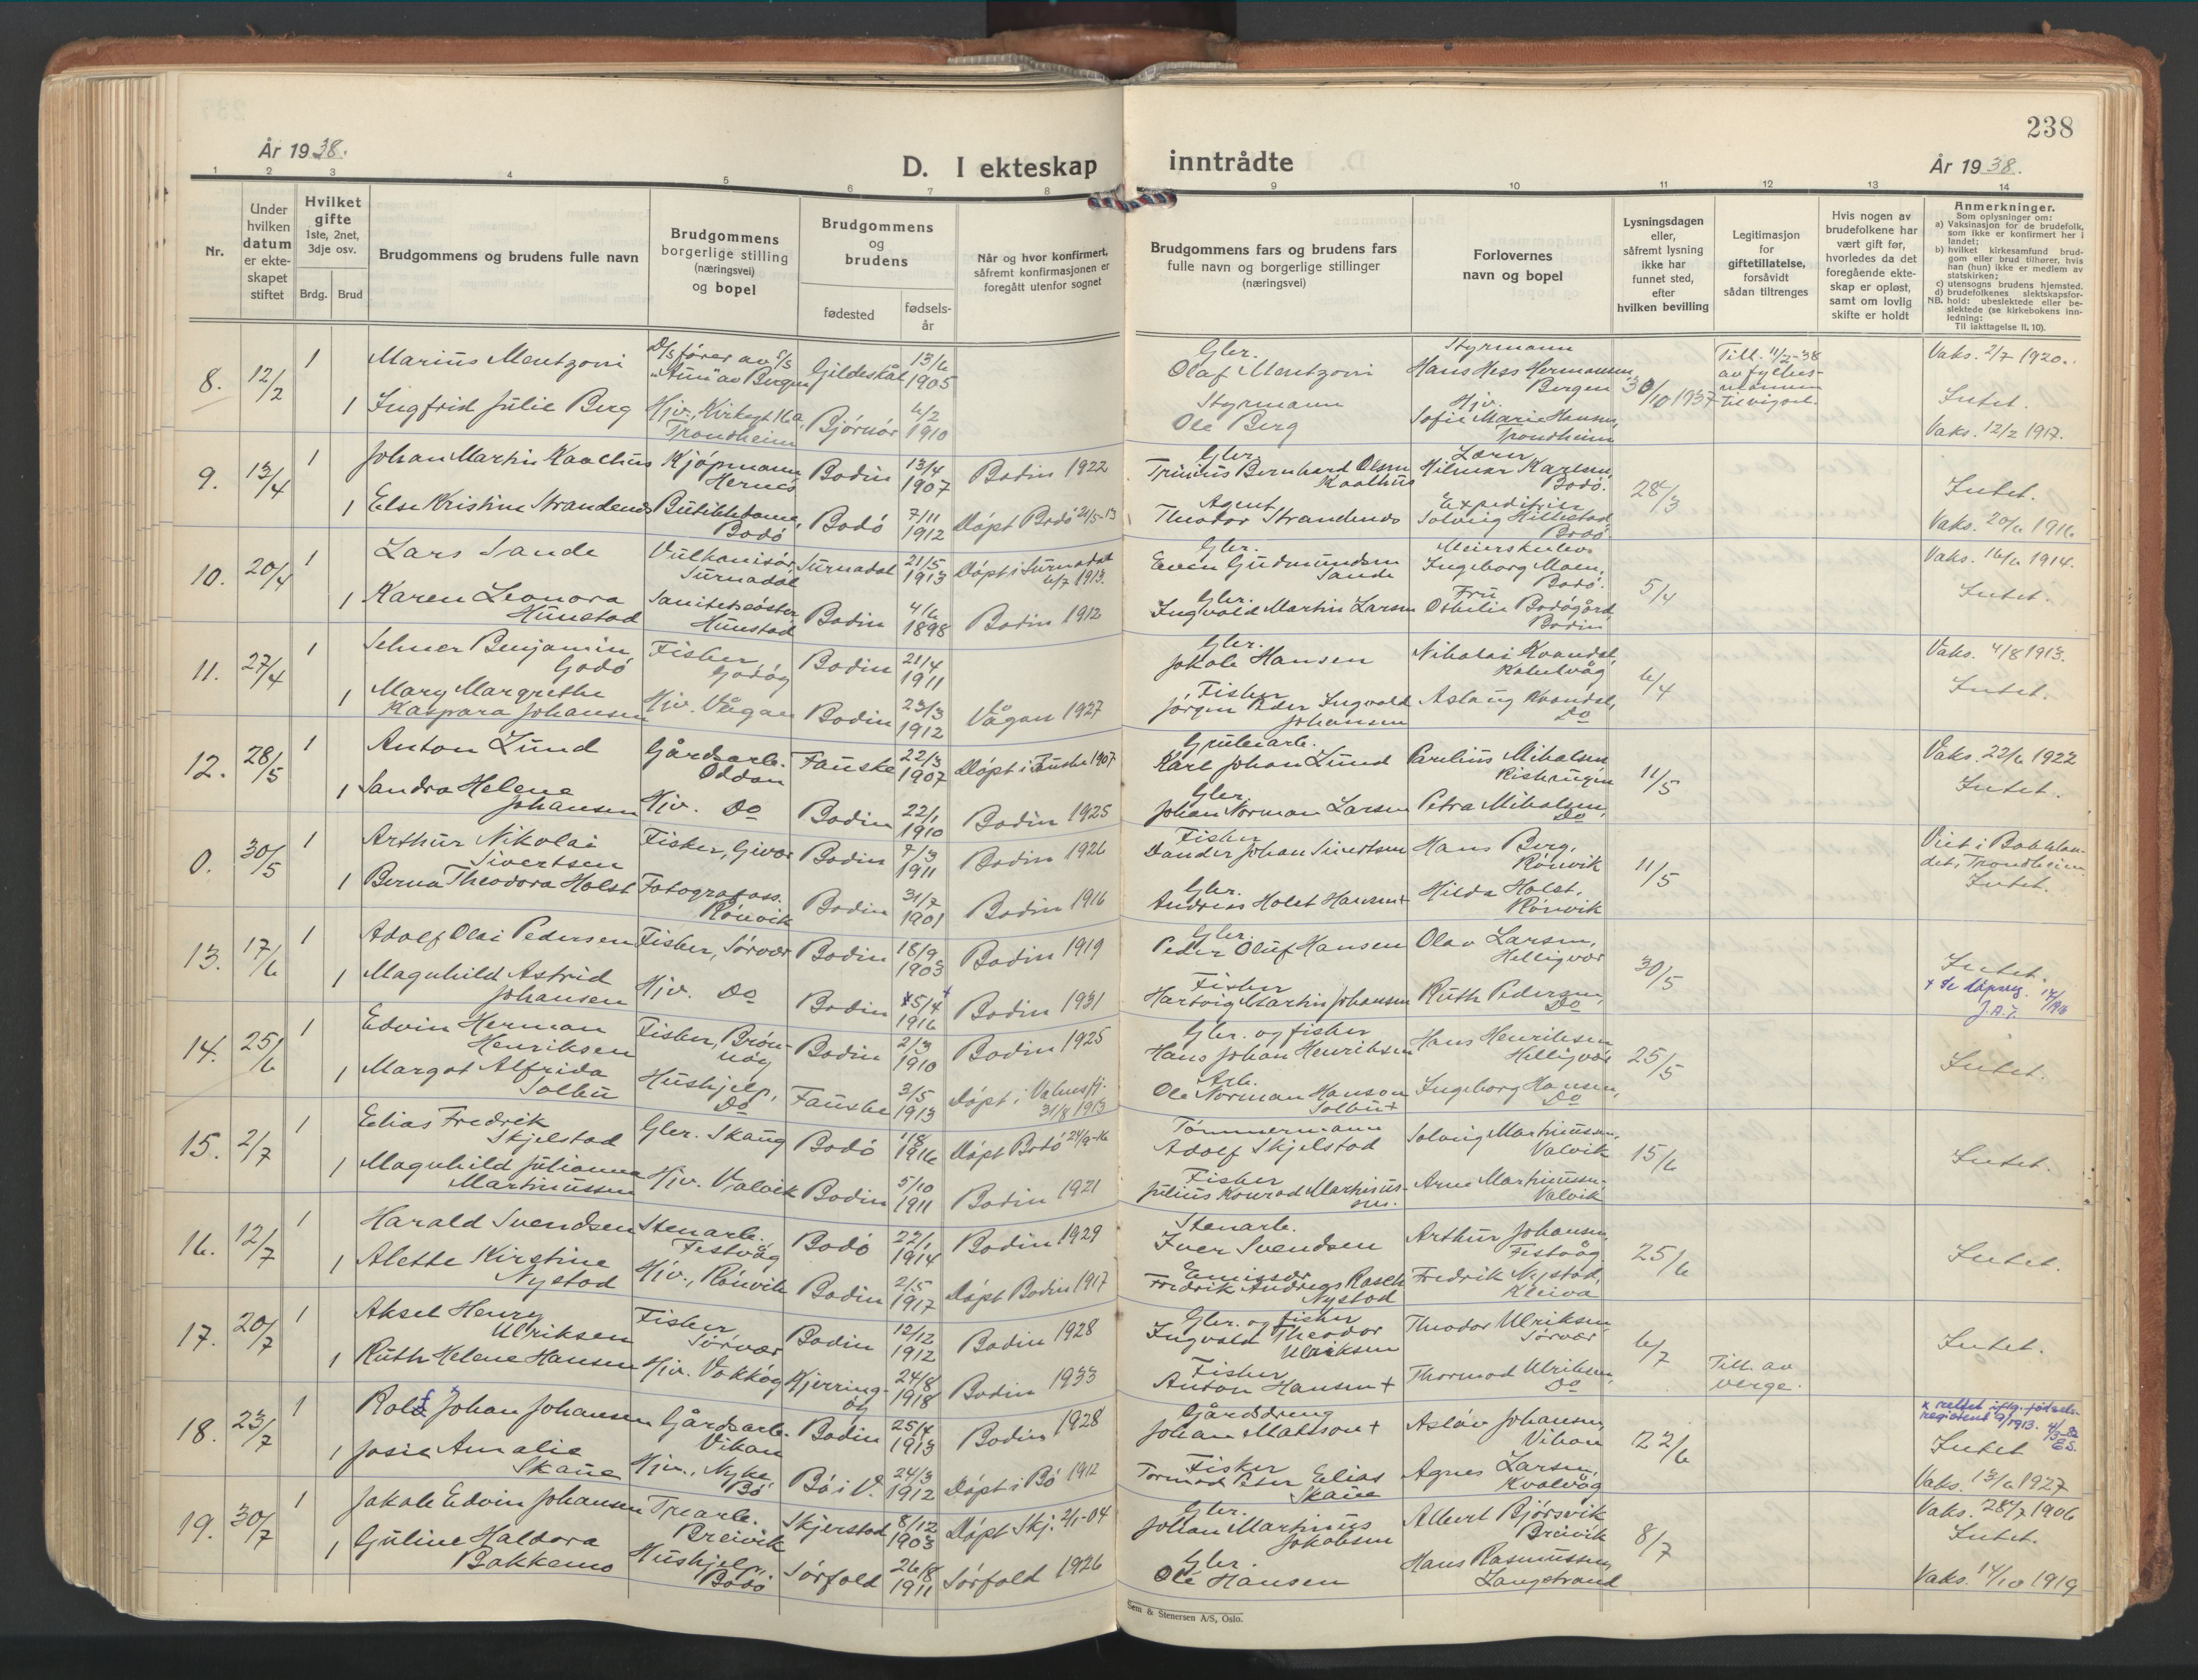 238
År 1938.
D. I ekteskap inntrådte
År 1938.
1 2 3 4 5 6 7 8 9 10 11 12 13 14
Nr.
Under hvilken datum er ekteskapet stiftet
Hvilket gifte 1ste, 2net, 3dje osv.
Brdg. Brud
Brudgommens og brudens fulle navn
Brudgommens borgerlige stilling (næringsvei) og bopel
Brudgommens og brudens
fødested
fødselsår
Når og hvor konfirmert, såfremt konfirmasjonen er foregått utenfor sognet
Brudgommens fars og brudens fars fulle navn og borgerlige stillinger (næringsvei)
Forlovernes navn og bopel
Lysningsdagen eller, såfremt lysning ikke har funnet sted, efter hvilken bevilling
Legitimasjon for giftetillatelse, forsåvidt sådan tiltrenges
Hvis nogen av brudefolkene har vært gift før, hvorledes da det foregående ekteskap er opløst, samt om lovlig skifte er holdt
Anmerkninger.
Som oplysninger om:
a) Vaksinasjon for de brudefolk, som ikke er konfirmert her i landet;
b) hvilket kirkesamfund brudgom eller brud tilhører, hvis han (hun) ikke er medlem av statskirken;
c) utensogns brudens hjemsted.
d) brudefolkenes slektskapsforhold: ubeslektede eller beslektede (se kirkebokens innledning:
NB. Til iakttagelse II, 10).
8. 12/2 1 Marius Mentzoni D/s fører av S/S "Ami" av Bergen Gildeskål 13/6 1905 Gbr. Olaf Mentzoni Styrmann Hans Hess Hermansen Bergen 30/10 1937 Till. 11/2-38 av fylkesmannen til vigsel. Vaks. 2/7 1920.
1 Ingfrid Julie Berg Hjv., Kirkegt 16a, Trondheim Bjørnør 4/2 1910 Styrmann Ole Berg Hjv. Sofie Marie Hansen, Trondheim Intet. Vaks. 12/2 1917.
9. 13/4 1 Johan Martin Kaalhus Kjøpmann Hernes Bodin 13/4 1907 Bodin 1922 Gbr. Trinius Bernhard Olsen Kaalhus Lærer Hilmar Karlsen, Bodø. 28/3 Intet.
1 Else Kristine Strandenes Butikkdame, Bodø Bodø 7/11 1912 Døpt Bodø 21/5-13 Agent Theodor Strandenes Expeditrise Solveig Hillestad Bodø. Vaks. 20/6 1916
10. 20/4 1 Lars Sande Vulkanisør, Surnadal Surnadal 21/5 1913 Døpt i Surnadal 6/7 1913. Gbr. Even Gudmundsen Sande Meierskelev Ingeborg Moen, Bodø. 5/4 Vaks. 16/6 1914.
1 Karen Leonora Hunstad Sanitetssøster, Hunstad Bodin 4/6 1898 Bodin 1912 Gbr. Ingvald Martin Larsen Fru Othilie Bodøgård, Bodin Intet.
11. 27/4 1 Selmer Benjamin Godø Fisker, Godøy Bodin 21/4 1911 Gbr. Jakob Hansen Nikolai Kvandal, Kalvåg 6/4 Vaks. 4/8 1913.
1 Mary Margrethe Kaspara Johansen Hjv. Vågan Bodin 23/3 1912 Vågan 1927 Fisker Jørgen Peder Ingvald Johansen Aslaug Kvandal, Do Intet.
12. 28/5 1 Anton Lund Gårdsarb. Oddan Fauske 22/3 1907 Døpt i Fauske 1907 Grubearb. Karl Johan Lund Paulius Mikalsen Rishaugen 11/5 Vaks. 22/6 1922
1 Sandra Helene Johansen Hjv. Do Bodin 22/1 1910 Bodin 1925 Gbr. Johan Norman Larsen Petra Mikalsen, Do Intet.
0. 30/5 1 Arthur Nikolai Sivertsen Fisker, Givær Bodin 7/3 1911 Bodin 1926 Fisker Dander Johan Sivertsen Hans Berg, Rønvik 11/5 Viet i Bakklandet, Trondheim.
1 Berna Theodora Holst Fotografass. Rønvik Bodin 31/7 1901 Bodin 1916 Gbr. Andreas Holst Hansen + Hilda Holst, Rønvik Intet.
13. 17/6 1 Adolf Olai Pedersen Fisker, Sørvær Bodin 18/9 1903 Bodin 1919 Gbr. Peder Oluf Hansen Olav Larsen, Helligvær 30/5 Intet.
1 Magnhild Astrid Johansen Hjv. Do Bodin 5/4 1916 Bodin 1931 Fisker Hartvig Martin Johansen Ruth Pedersen, Do
14. 25/6 1 Edvin Herman Henriksen Fisker, Brønnøy Bodin 2/3 1910 Bodin 1925 Gbr. og fisker Hans Johan Henriksen Hans Henriksen Helligvær 25/5 Intet.
1 Margot Alfrida Solbu Hushjelp, Do Fauske 3/5 1913 Døpt i Valnesfj. 31/8 1913 Arb. Ole Norman Hanson Solbu + Ingeborg Hansen, Do
15. 2/7 1 Elias Fredrik Skjelstad Gbr. Skaug Bodø 1/8 1916 Døpt Bodø 24/9-16 Tømmermann Adolf Skjelstad Solveig Martinussen, Valvik 15/6 Intet.
1 Magnhild Julianna Martinussen Hjv. Valvik Bodin 5/10 1911 Bodin 1921 Fisker Julius Konrad Martinussen. Arne Martinussen, Valvik
16. 12/7 1 Harald Svendsen Stenarb. Festvåg Bodø 22/1 1914 Bodin 1929 Stenarb. Iver Svendsen Arthur Johansen, Festvåg 25/6 Intet.
1 Alette Kirstine Nystad Hjv., Rønvik Bodin 2/5 1917 Døpt Bodin 1917 Emissær Fredrik Andreas Rasch Nystad Fredrik Nystad, Kleiva
17. 20/7 1 Aksel Henry Ulriksen Fisker Sørvær Bodin 12/12 1912 Bodin 1928 Gbr. og fisker Ingvald Theodor Ulriksen Theodor Ulriksen, Sørvær 6/7 Intet.
1 Ruth Helene Hansen Hjv. Vokkøy Kjerringøy 24/8 1918 Bodin 1933 Fisker Anton Hansen + Thormod Ulriksen, Do Till. av verge.
18. 23/7 1 Rolf Johan Johansen Gårdsarb. Vikan Bodin 25/4 1913 Bodin 1928 Gårddreng Johan Mattson + Asløv Johansen, Vikan 22/6 x rettet iflg. fødselsregisteret 9/1913. Intet
1 Josie Amalie Skaue Hjv., Nyke, Bø Bø i V. 24/3 1912 Døpt i Bø 1912 Fisker Tormod Peter Elias Skaue Agnes Larsen, Kvalvåg Vaks. 13/6 1927
19. 30/7 1 Jakob Edvin Johansen Trearb. Breivik Skjerstad 8/12 1903 Døpt Skj. 2/1-04 Gbr. Johan Martinus Jakobsen Albert Bjørsvik Breivik 8/7 Vaks. 28/7 1906
1 Guline Haldora Bakkemo Hushjelp, Bodø Sørfold 26/8 1911 Sørfold 1926 Gbr. Ole Hansen Hans Rasmussen, Langstrand Intet. Vaks. 14/10 1919
Sem & Stenersen A/S, Oslo.